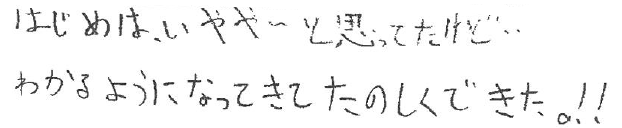 はじめは、いやや〜と思ってたけど‥
わかるようになってきてたのしくできた。!!